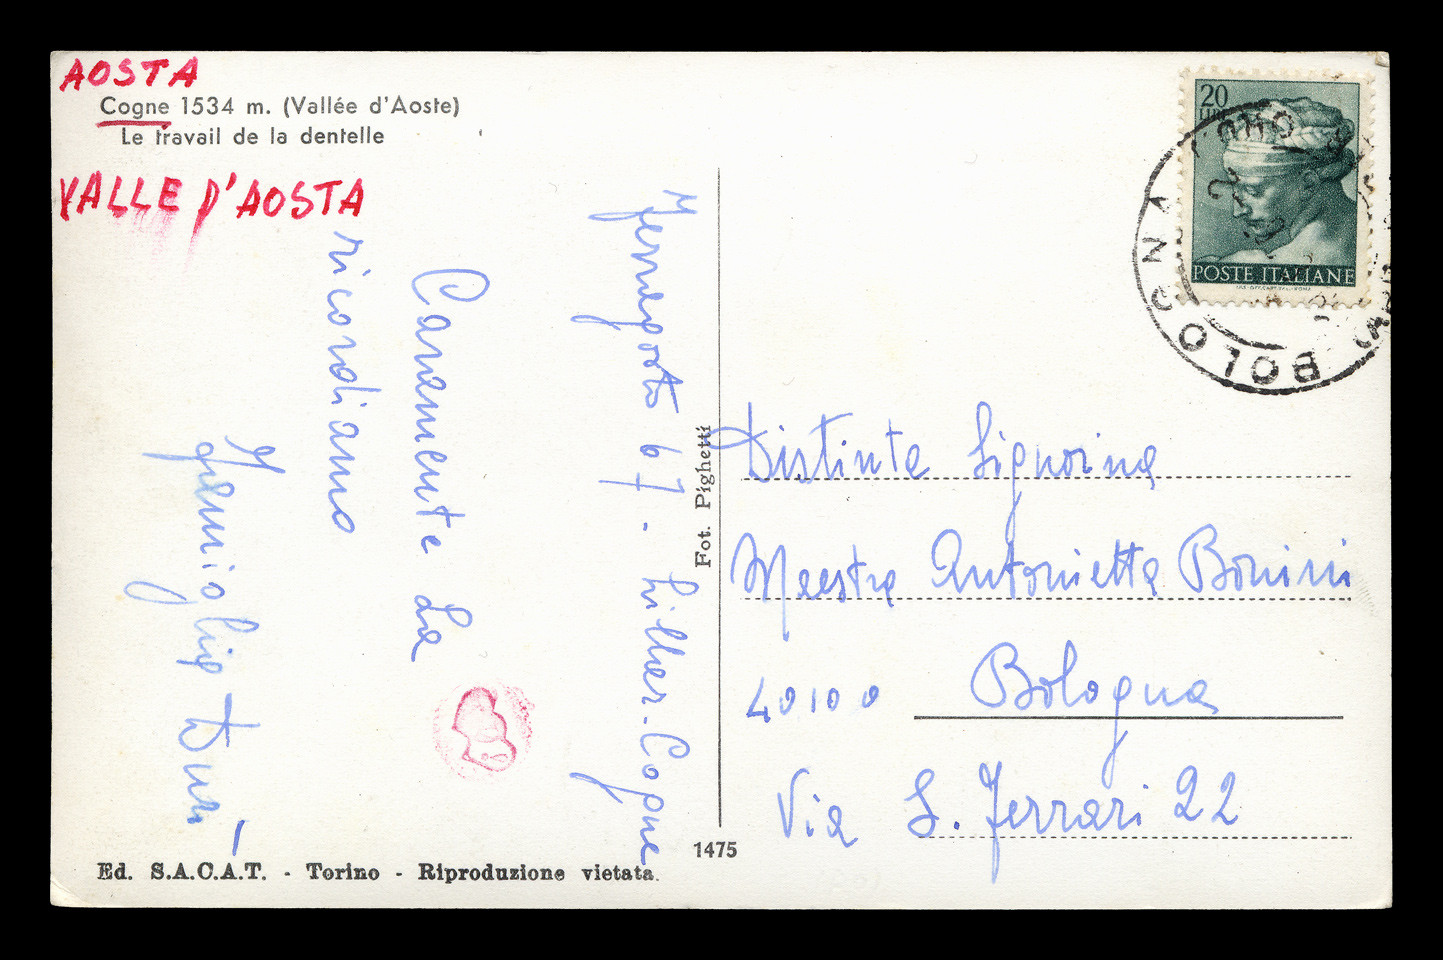 AOSTA
Cogne 1534 m. (Vallée d'Aoste)
Le travail de la dentelle
VALLE D'AOSTA
Ferragosto 67 - Lillaz - Cogne
Caramente La
ricordiamo
Famiglia
Fot. Pighetti
1475
Ed. S.A.C.A.T. - Torino - Riproduzione vietata.
20
LIRE
POSTE ITALIANE
BOLOGNA
Distinta Signorina
Maestra Antonietta Bonini
40100 Bologna
Via S. Ferrari 22